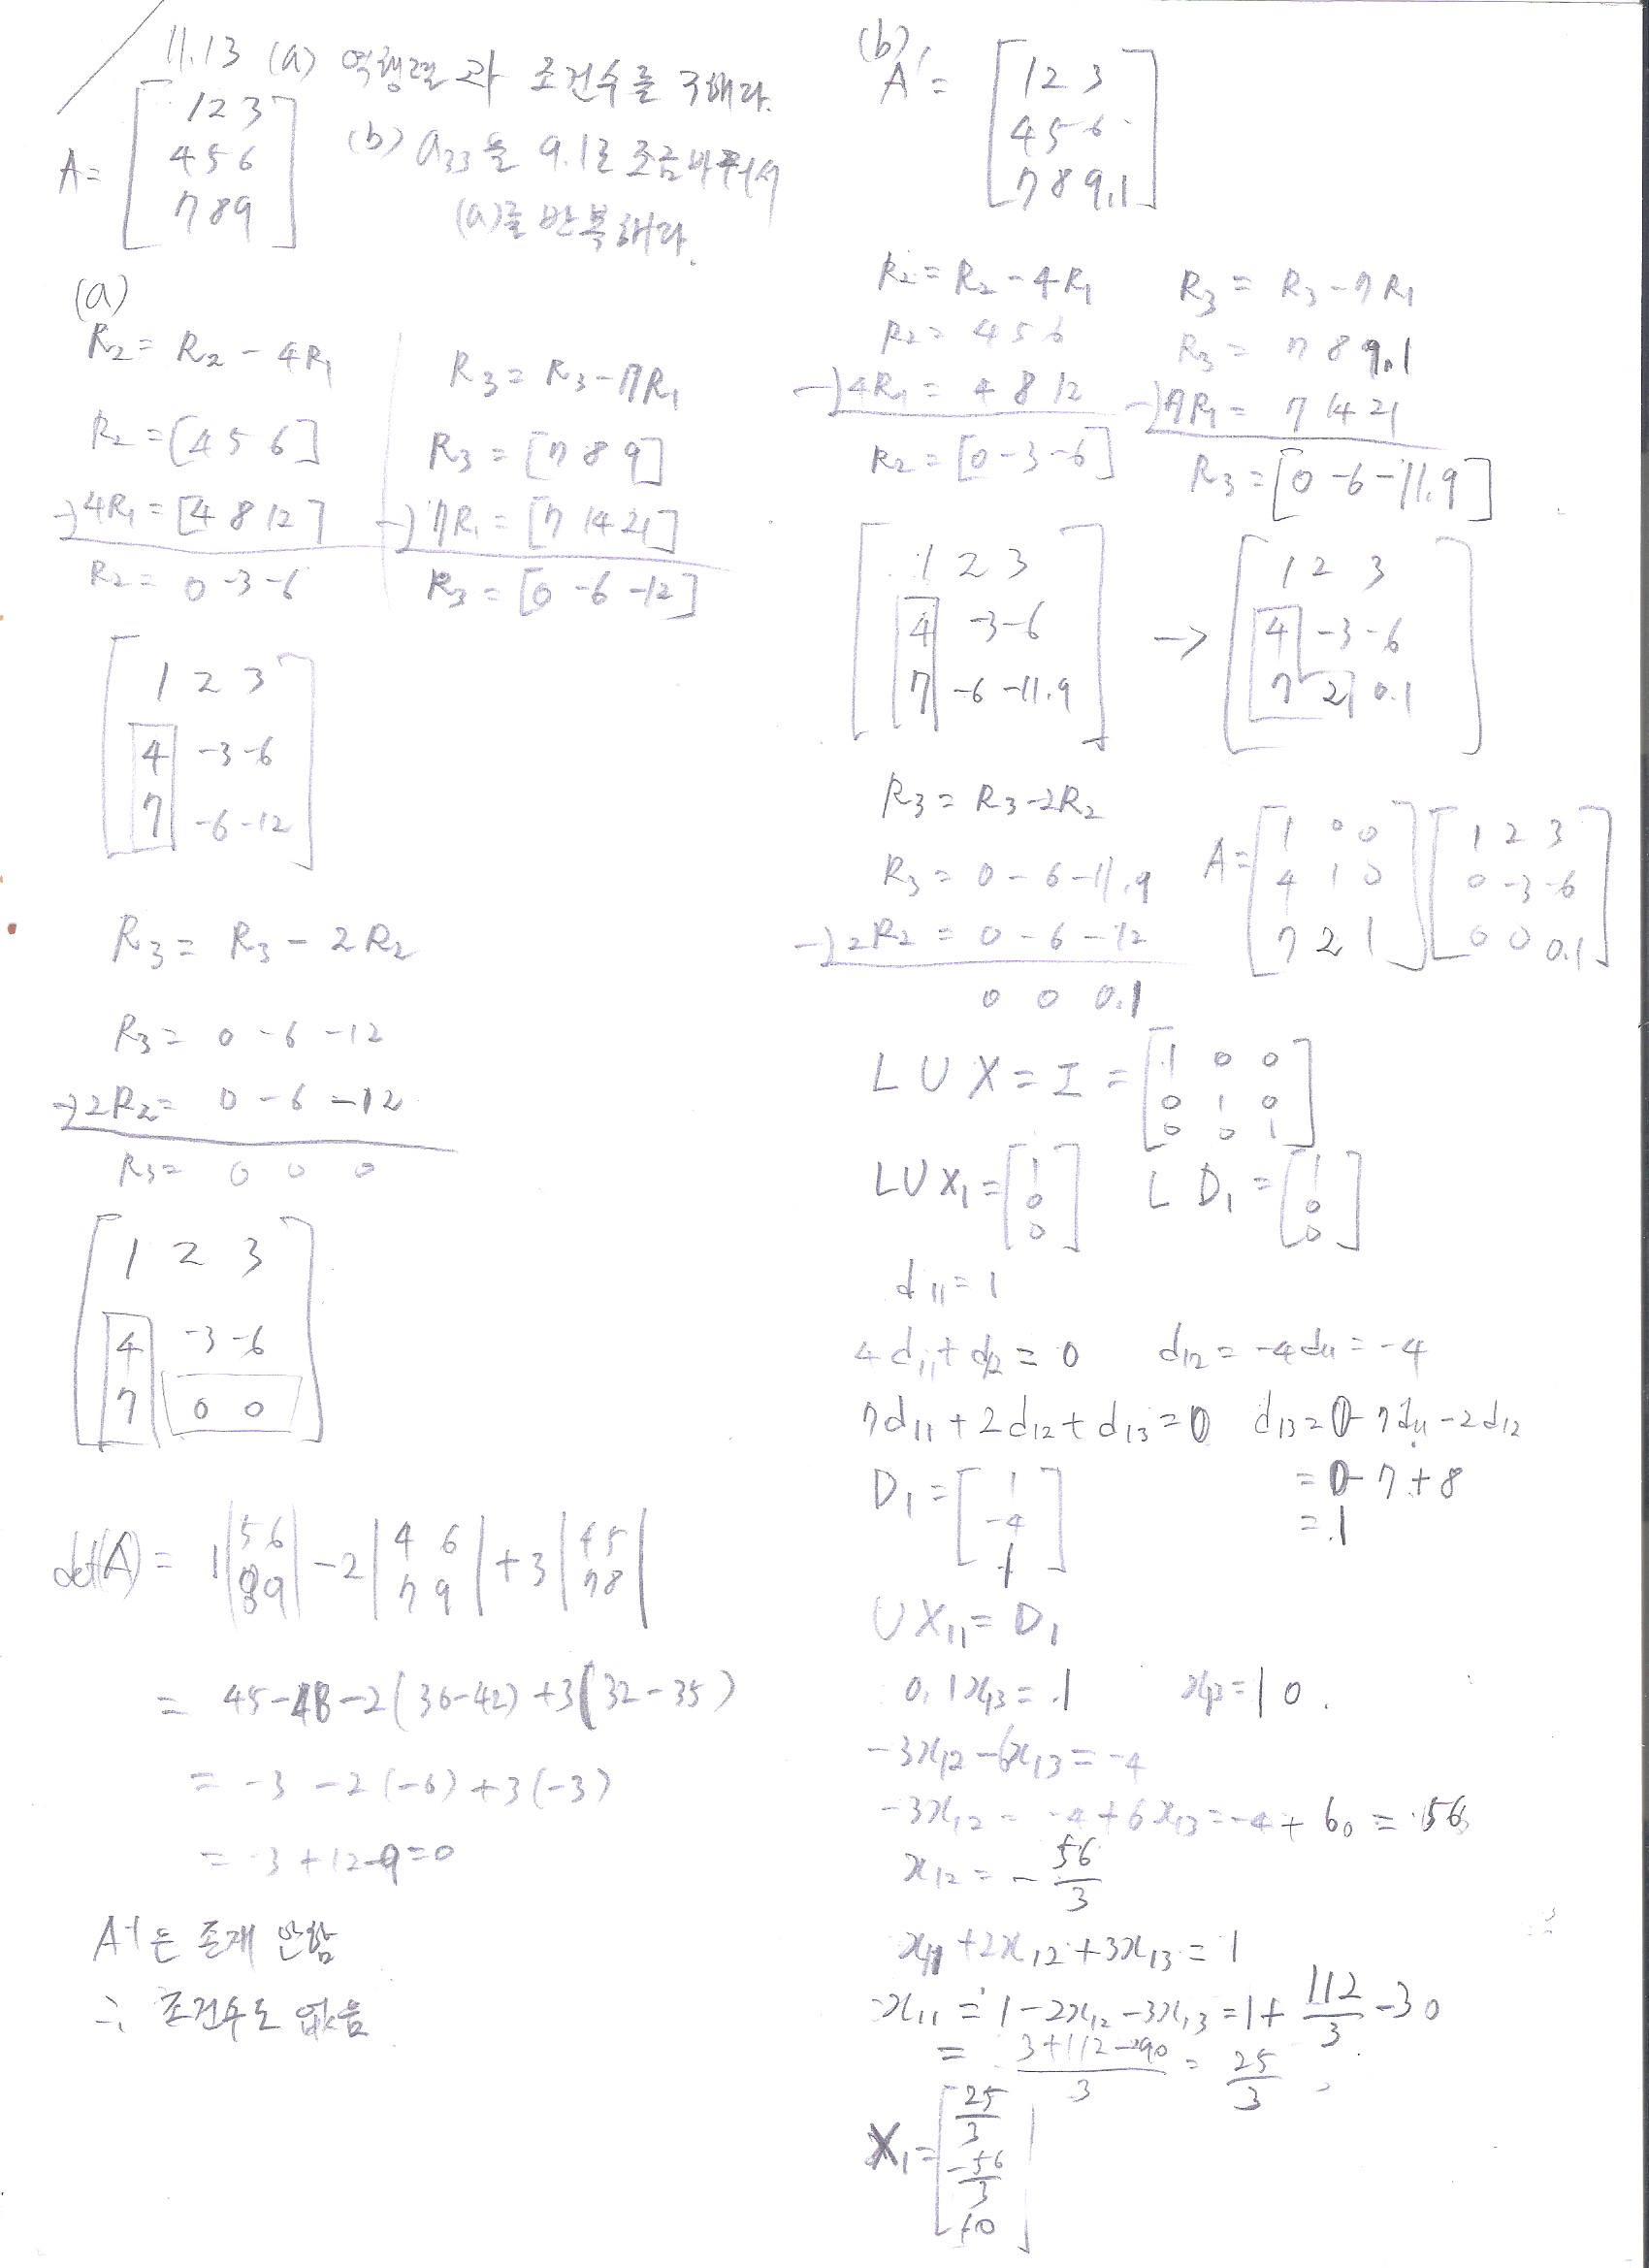 11.13 (a) 역행렬과 조건수를 구해라.
A = [1 2 3
4 5 6
7 8 9]
(b) a33을 9.1로 조금 바꿔서
(a)를 반복해라.
(a)
R2 = R2 - 4R1
R2 = [4 5 6]
-) 4R1 = [4 8 12]
R2 = 0 -3 -6
R3 = R3 - 7R1
R3 = [7 8 9]
-) 7R1 = [7 14 21]
R3 = [0 -6 -12]
[1 2 3
4 -3 -6
7 -6 -12]
R3 = R3 - 2R2
R3 = 0 -6 -12
-) 2R2 = 0 -6 -12
R3 = 0 0 0
[1 2 3
4 -3 -6
7 0 0]
det(A) = 1|5 6 8 9| - 2|4 6 7 9| + 3|4 5 7 8|
= 45-48-2(36-42)+3(32-35)
= -3 -2(-6)+3(-3)
= -3+12-9=0
A-1은 존재 안함
∴ 조건수도 없음
(b)
A' = [1 2 3
4 5 6
7 8 9.1]
R2 = R2 - 4R1
R2 = 4 5 6
-) 4R1 = 4 8 12
R2 = [0 -3 -6]
R3 = R3 - 7R1
R3 = 7 8 9.1
-) 7R1 = 7 14 21
R3 = [0 -6 -11.9]
[1 2 3
4 -3 -6
7 -6 -11.9]
-> [1 2 3
4 -3 -6
7 2 0.1]
R3 = R3 - 2R2
R3 = 0 -6 -11.9
-) 2R2 = 0 -6 -12
0 0 0.1
A = [1 0 0
4 1 0
7 2 1] [1 2 3
0 -3 -6
0 0 0.1]
L U X = I = [1 0 0
0 1 0
0 0 1]
LUX1 = [1
0
0]
L D1 = [1
0
0]
d11 = 1
4d11 + d12 = 0 d12 = -4d11 = -4
7d11 + 2d12 + d13 = 0 d13 = 0-7d11-2d12
= 0-7+8
= 1
D1 = [1
-4
1]
UX11 = D1
0.1x13 = 1 x13 = 10.
-3x12 - 6x13 = -4
-3x12 = -4+6x13 = -4+60 = 56
x12 = -56/3
x11 + 2x12 + 3x13 = 1
x11 = 1-2x12-3x13 = 1+112/3-30
= (3+112-90)/3 = 25/3
X1 = [25/3
-56/3
10]